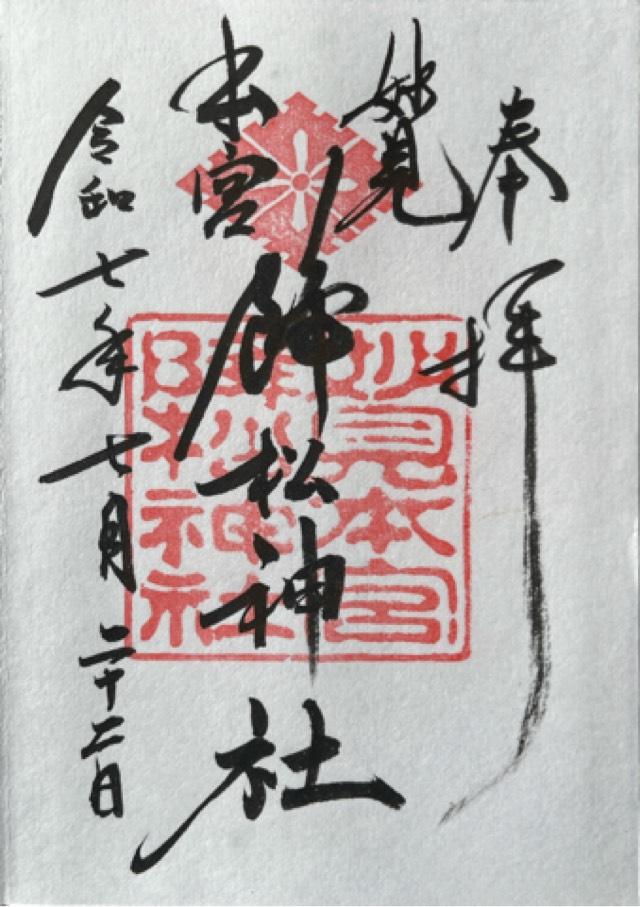 奉拝
妙見
本宮
降松神社
令和七年七月二十二日
妙見本宮
降松神社